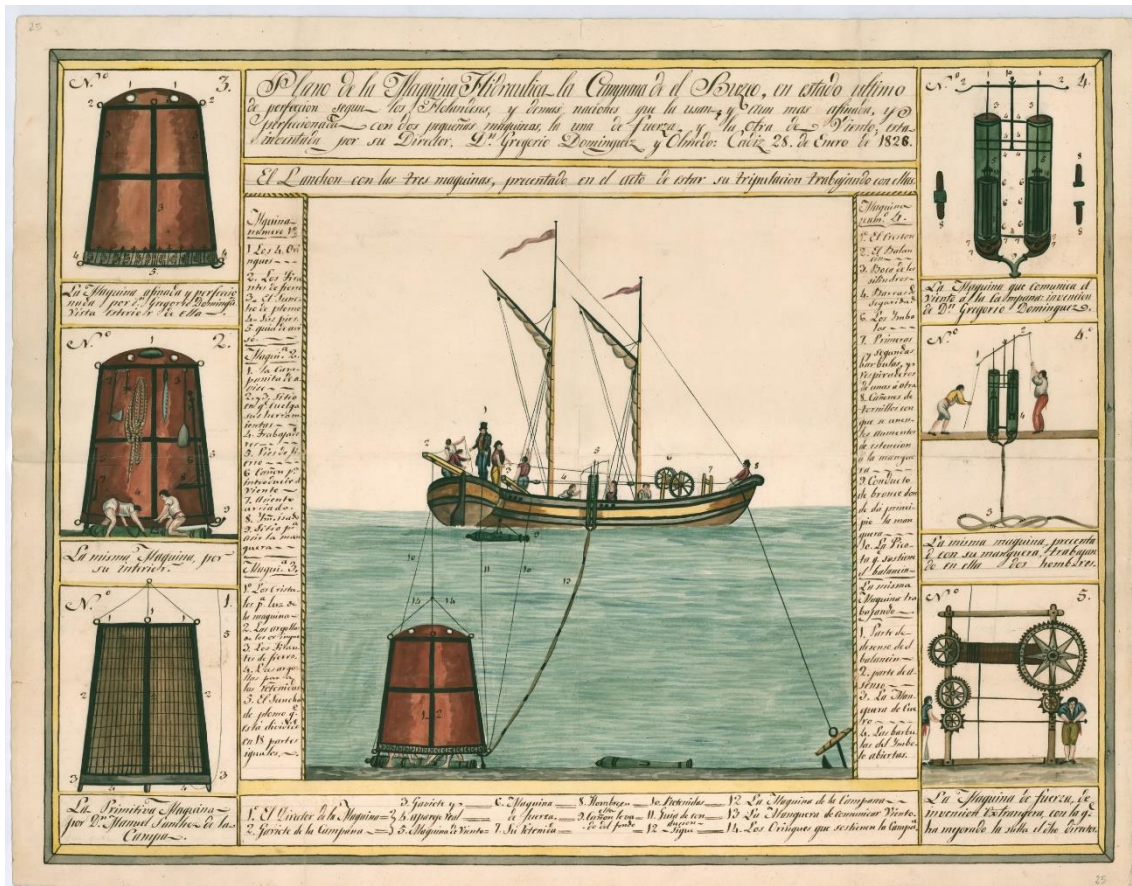 25
Plano de la Maquina Hidraulica la Campana de el Buzo, en estado ultimo
de perfeccion segun los Holandeses, y demas naciones que la usan, y aun mas afinada, y
perfeccionada con dos pequeñas maquinas, la una de fuerza, y la otra de Viento, esta
inventada por su Director, Dn. Gregorio Dominguez y Olmedo: Cadiz 28. de Enero de 1826.
El Lanchon con las tres maquinas, precentado en el acto de estar su tripulacion trabajando con ellas
N.o 3.
La Maquina afinada y perfeccio
nada por Dn. Gregorio Domingz.
Vista exterior de ella
N.o 2.
La misma Maquina, por
su interior.
N.o 1.
La Primitiva Maquina
por Dn. Manuel Sanchez de la
Campa.
Maquina
numero 1o
1 Los 4. Orin
ques
2. Los Tiran
tes de fierro
3. El Sunc
ho de plomo
4. Sus pies
5. guia de avi
so.
Maqui.a 2.
1. la Cam
panita de a
viso
2. y 3. Sitio
en q.e cuelga
sus herram
ientas
4. Trabajado
res
5. Pies de fi
erro
6. Cañon p.a
introducir el
Viento
7. Asiento
8.
9. Sitio p.a
asir la man
guera
Maqui.a 3.
1o. Los Crista
les p.a luz de
la maquina
2. Las argolla
de los orinque
3. Los Tiran
tes de fierro.
4. Las argo
llas para
las retenidas
5. El Suncho
de plomo q.e
está dividido
en 18 partes
iguales.
Maquina
num.o 4.
2. El Balan
cin
3. Boca de los
silindros
4. Barras de
seguridad
6. Los Imbo
los
7. Primeras
y segundas
barbulas, y
respiraderos
de unas á otra
8. Cañones de
tornillos con
que se
aumentos
de estencion
á la mangue
ra
9. Conducto
de bronce don
de da princi
pio la man
guera
10. La Pico
ta q.e sostiene
el balancin
La misma
Maquina tra
bajando
1. Parte de
desense del
balancin
2. parte de a
senso
3. La Man
guera de Cue
ro
4. Las barbu
las del Imbo
lo abiertas.
N.o 4.
La Maquina que comunica el
Viento a la Campana: invencion
de Dn. Gregorio Dominguez.
N.o 4.a
La misma maquina, precenta
da con su manguera, trabajan
do en ella dos hombres.
N.o 5.
La Maquina de fuerza, de
invencion Extrangera, con la q.e
ha mejorado la suya el dho director.
1o. El Director de la Maquina
2. Gaviete de la Campana
3. Gaviete y
4. aparejo real
5. Maquina de Viento
6. Maquina
de fuerza.
7. Su Retenida
8. Hombres
9. Cañon leva
do del fondo
10. Retenidas
11. Guia de con
duccion
12 Sigue
12 La Maquina de la Campana
13 La Manguera de comunicar Viento
14. Los Orinques que sostienen la Campa.
25